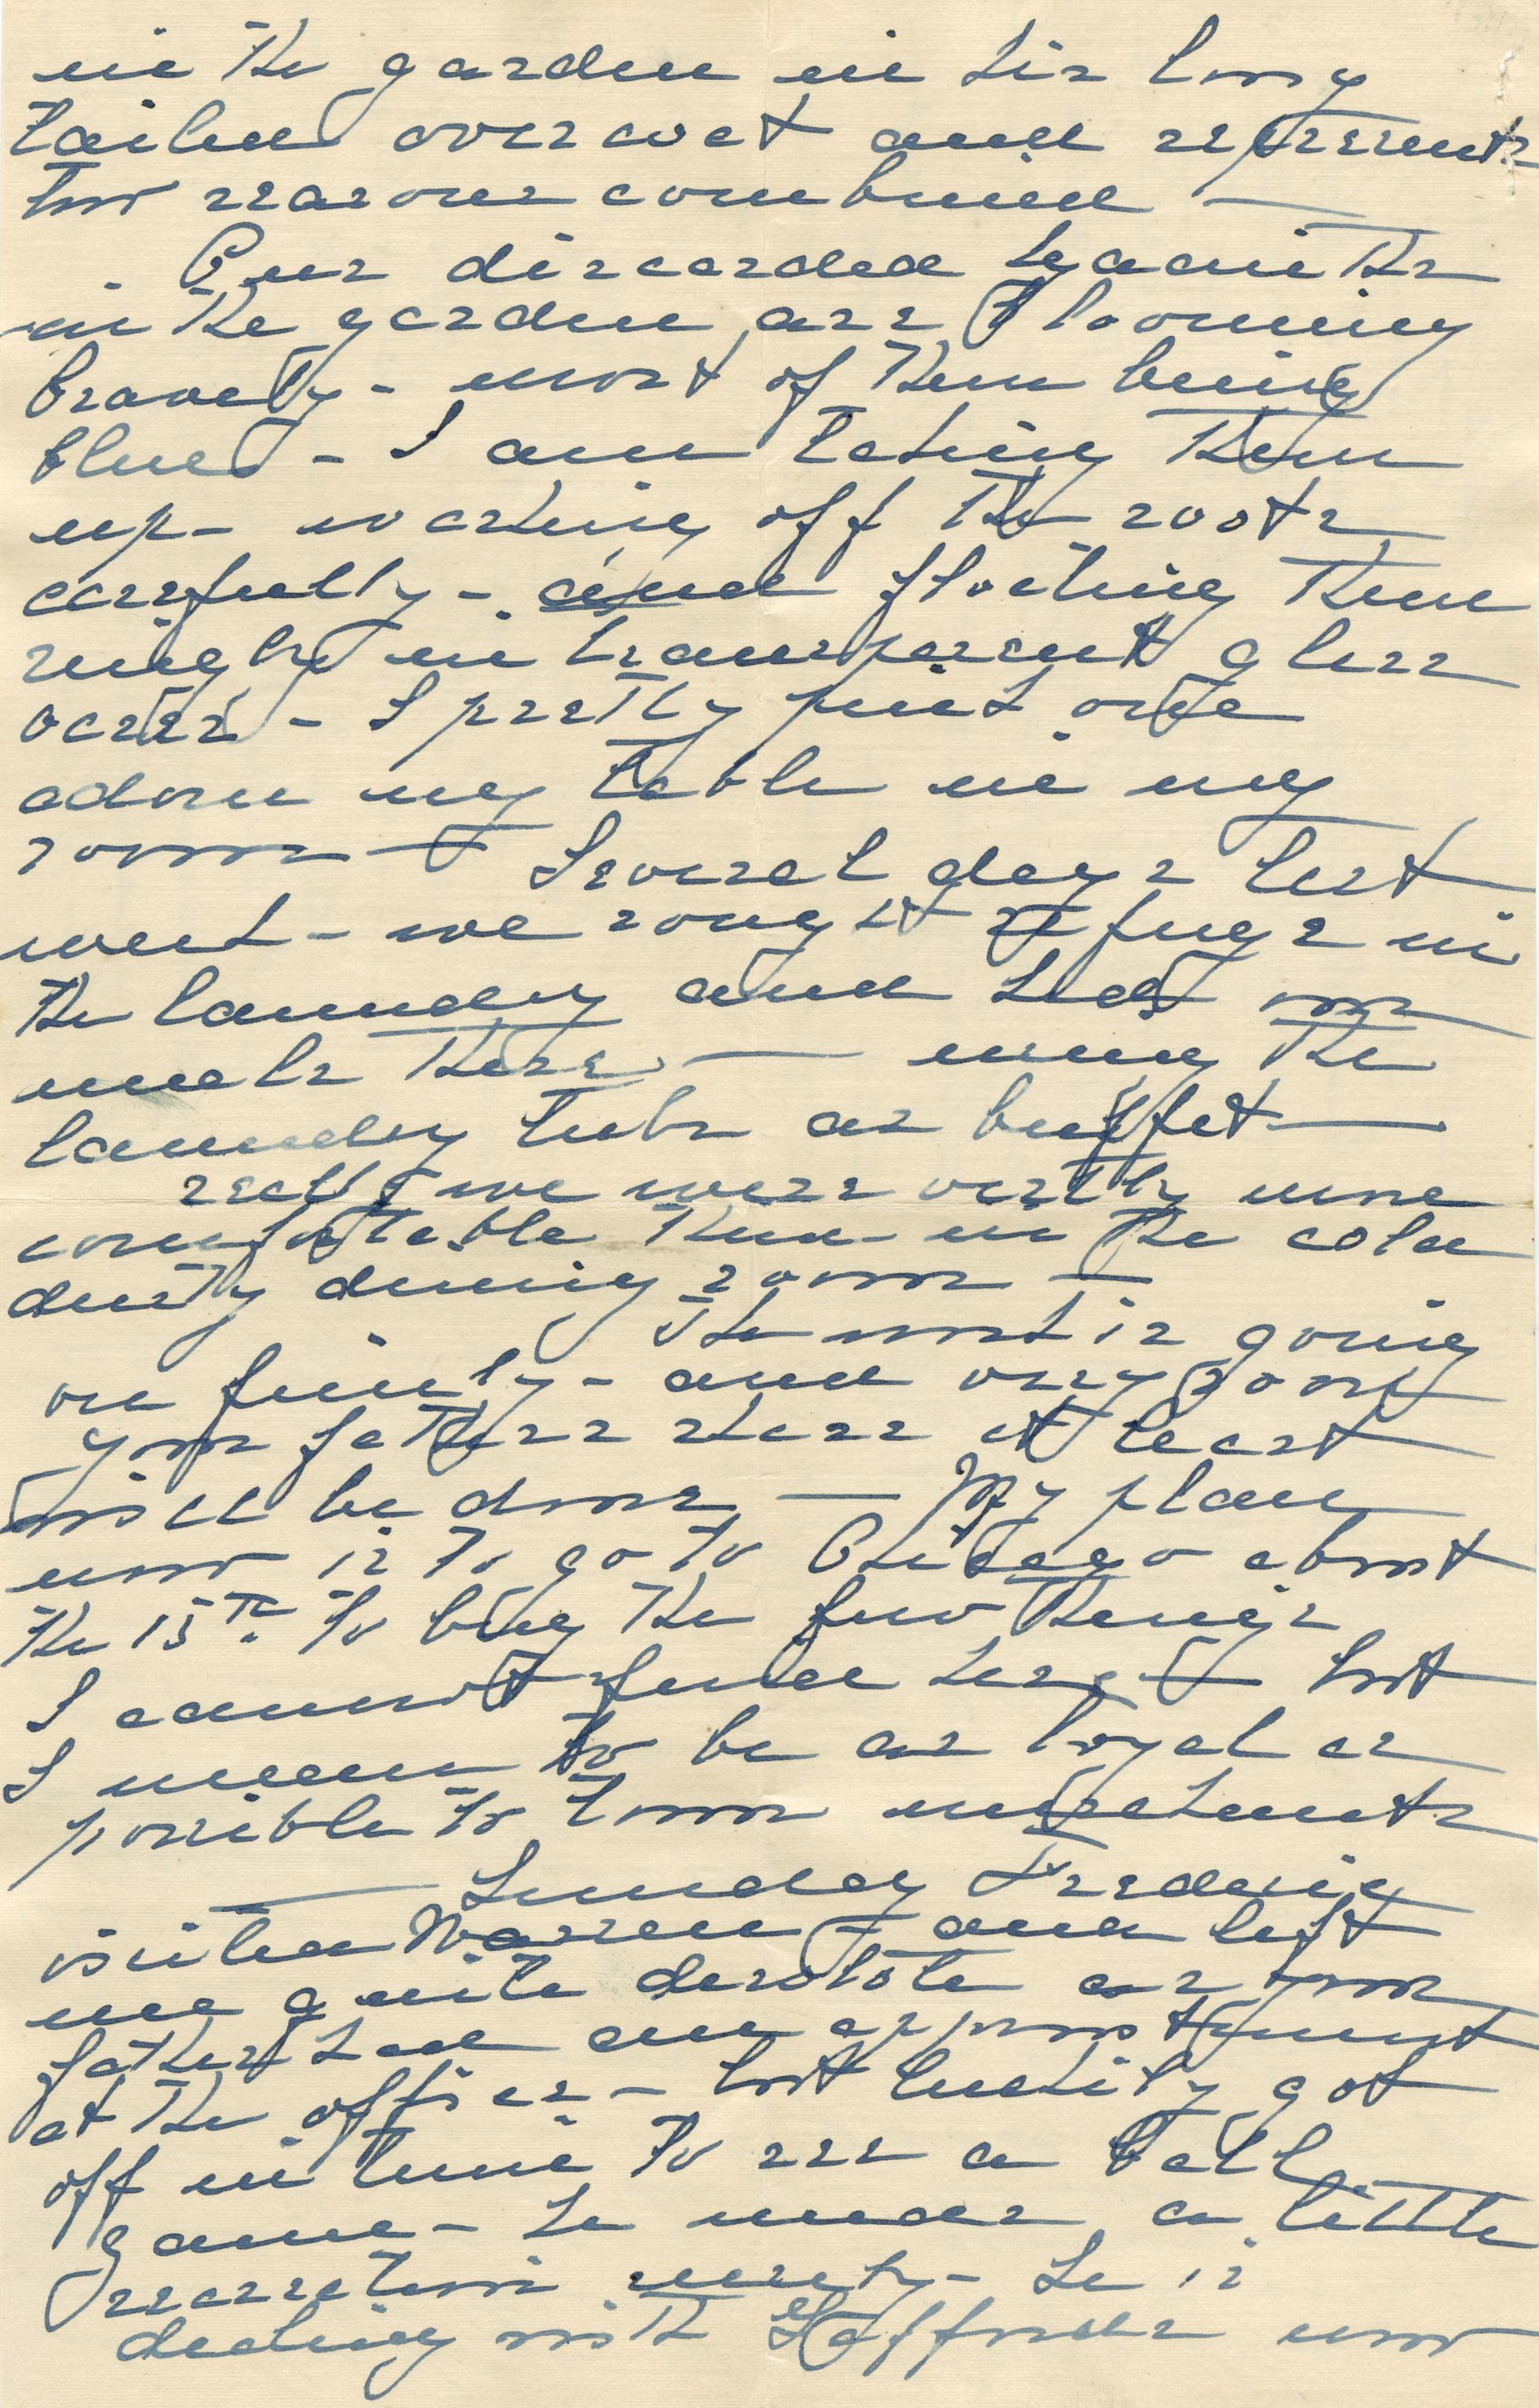 in the garden in his long
tailed overcoat and represents
two seasons combined —
Our discarded hyacinths
in the garden are blooming
bravely - most of them being
blue - I am taking them
up - washing off the roots
carefully - and floating them
singly in transparent glass
vases - A pretty pink one
adorns my table in my
room — Several days last
week - we sought refuge in
the laundry and had our
meals there — using the
laundry tubs as buffet —
really we were vastly more
comfortable than in the cold
dusty dining room —
The work is going
on finely - and very soon
your fathers share at least
will be done — My plan
now is to go to Chicago about
the 15th to buy the few things
I cannot find here — but
I mean to be as loyal as
possible to town merchants
— Sunday Frederic
visited Warren - and left
me quite desolate as your
father had an appointment
at the office - but luckily got
off in time to see a ball
game - he needs a little
recreation surely - he is
dealing with now